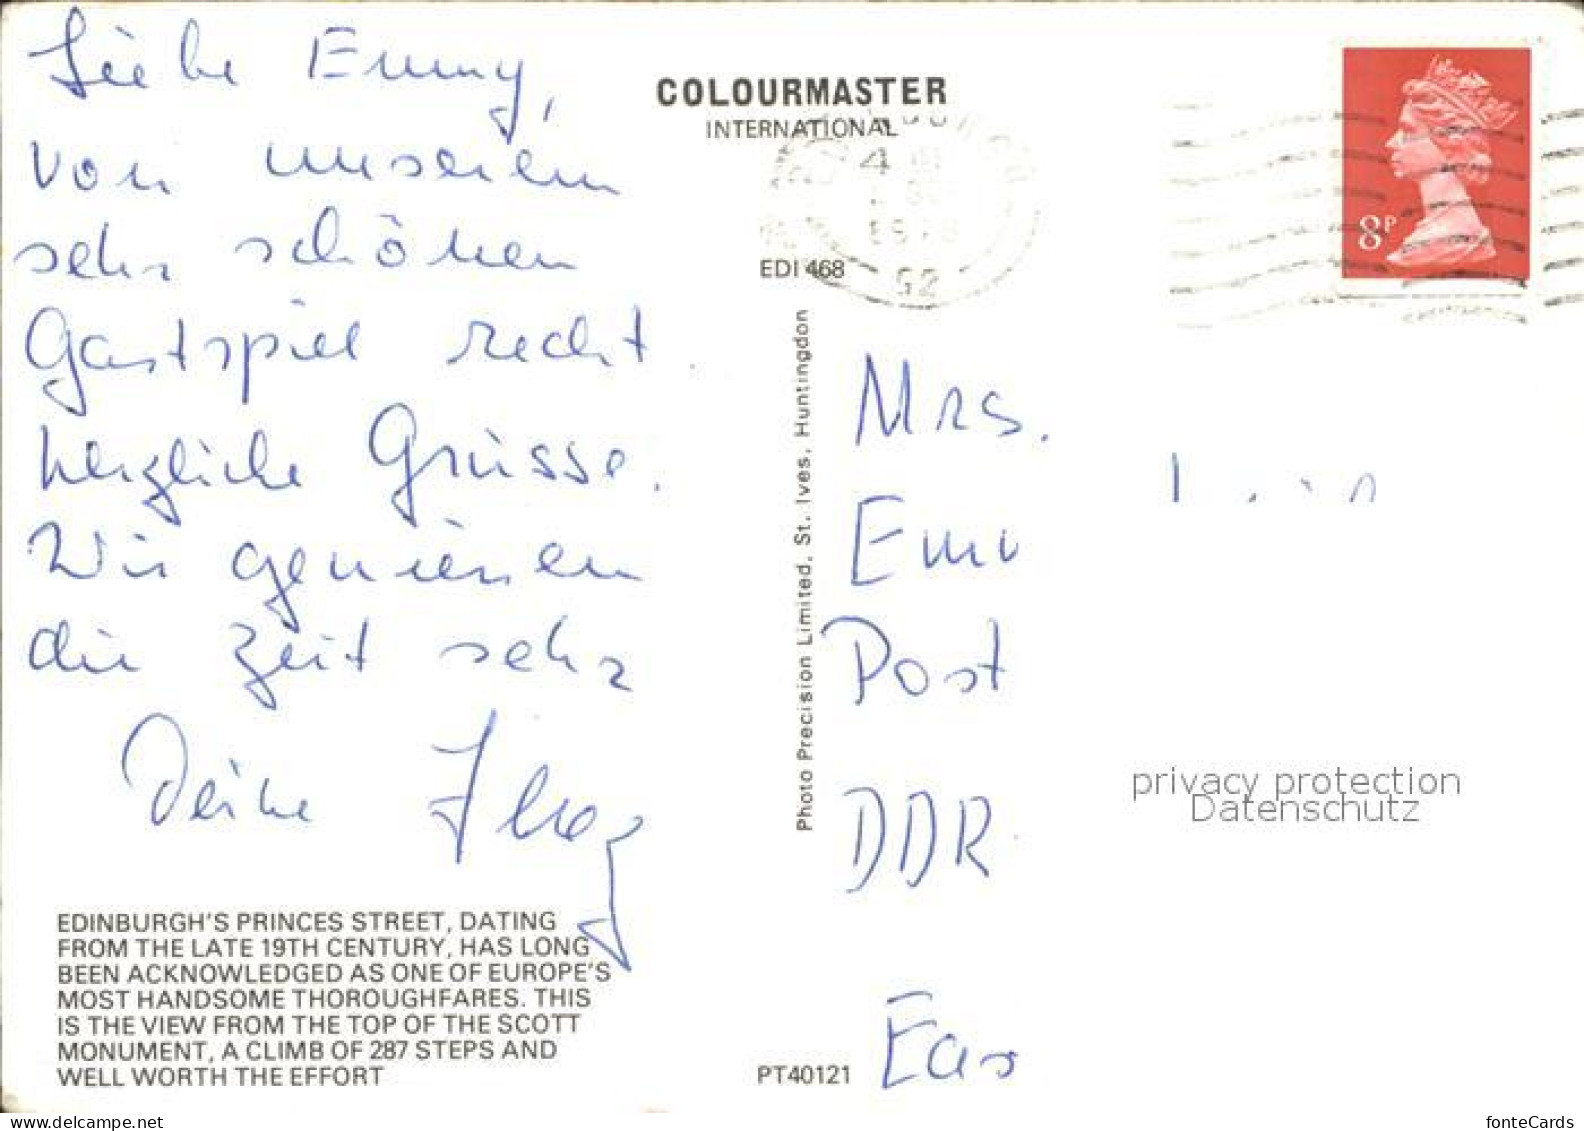 Liebe Emmy,
von unserem
sehr schönen
Gastspiel recht
herzliche Grüsse.
Wir geniesen
die Zeit sehr
Deine
EDINBURGH'S PRINCES STREET, DATING
FROM THE LATE 19TH CENTURY, HAS LONG
BEEN ACKNOWLEDGED AS ONE OF EUROPE'S
MOST HANDSOME THOROUGHFARES. THIS
IS THE VIEW FROM THE TOP OF THE SCOTT
MONUMENT, A CLIMB OF 287 STEPS AND
WELL WORTH THE EFFORT
COLOURMASTER
INTERNATIONAL
EDI 468
Photo Precision Limited, St. Ives, Huntingdon
PT40121
8P
Mrs.
Post
DDR
privacy protection
Datenschutz
delcampe.net
fonteCards